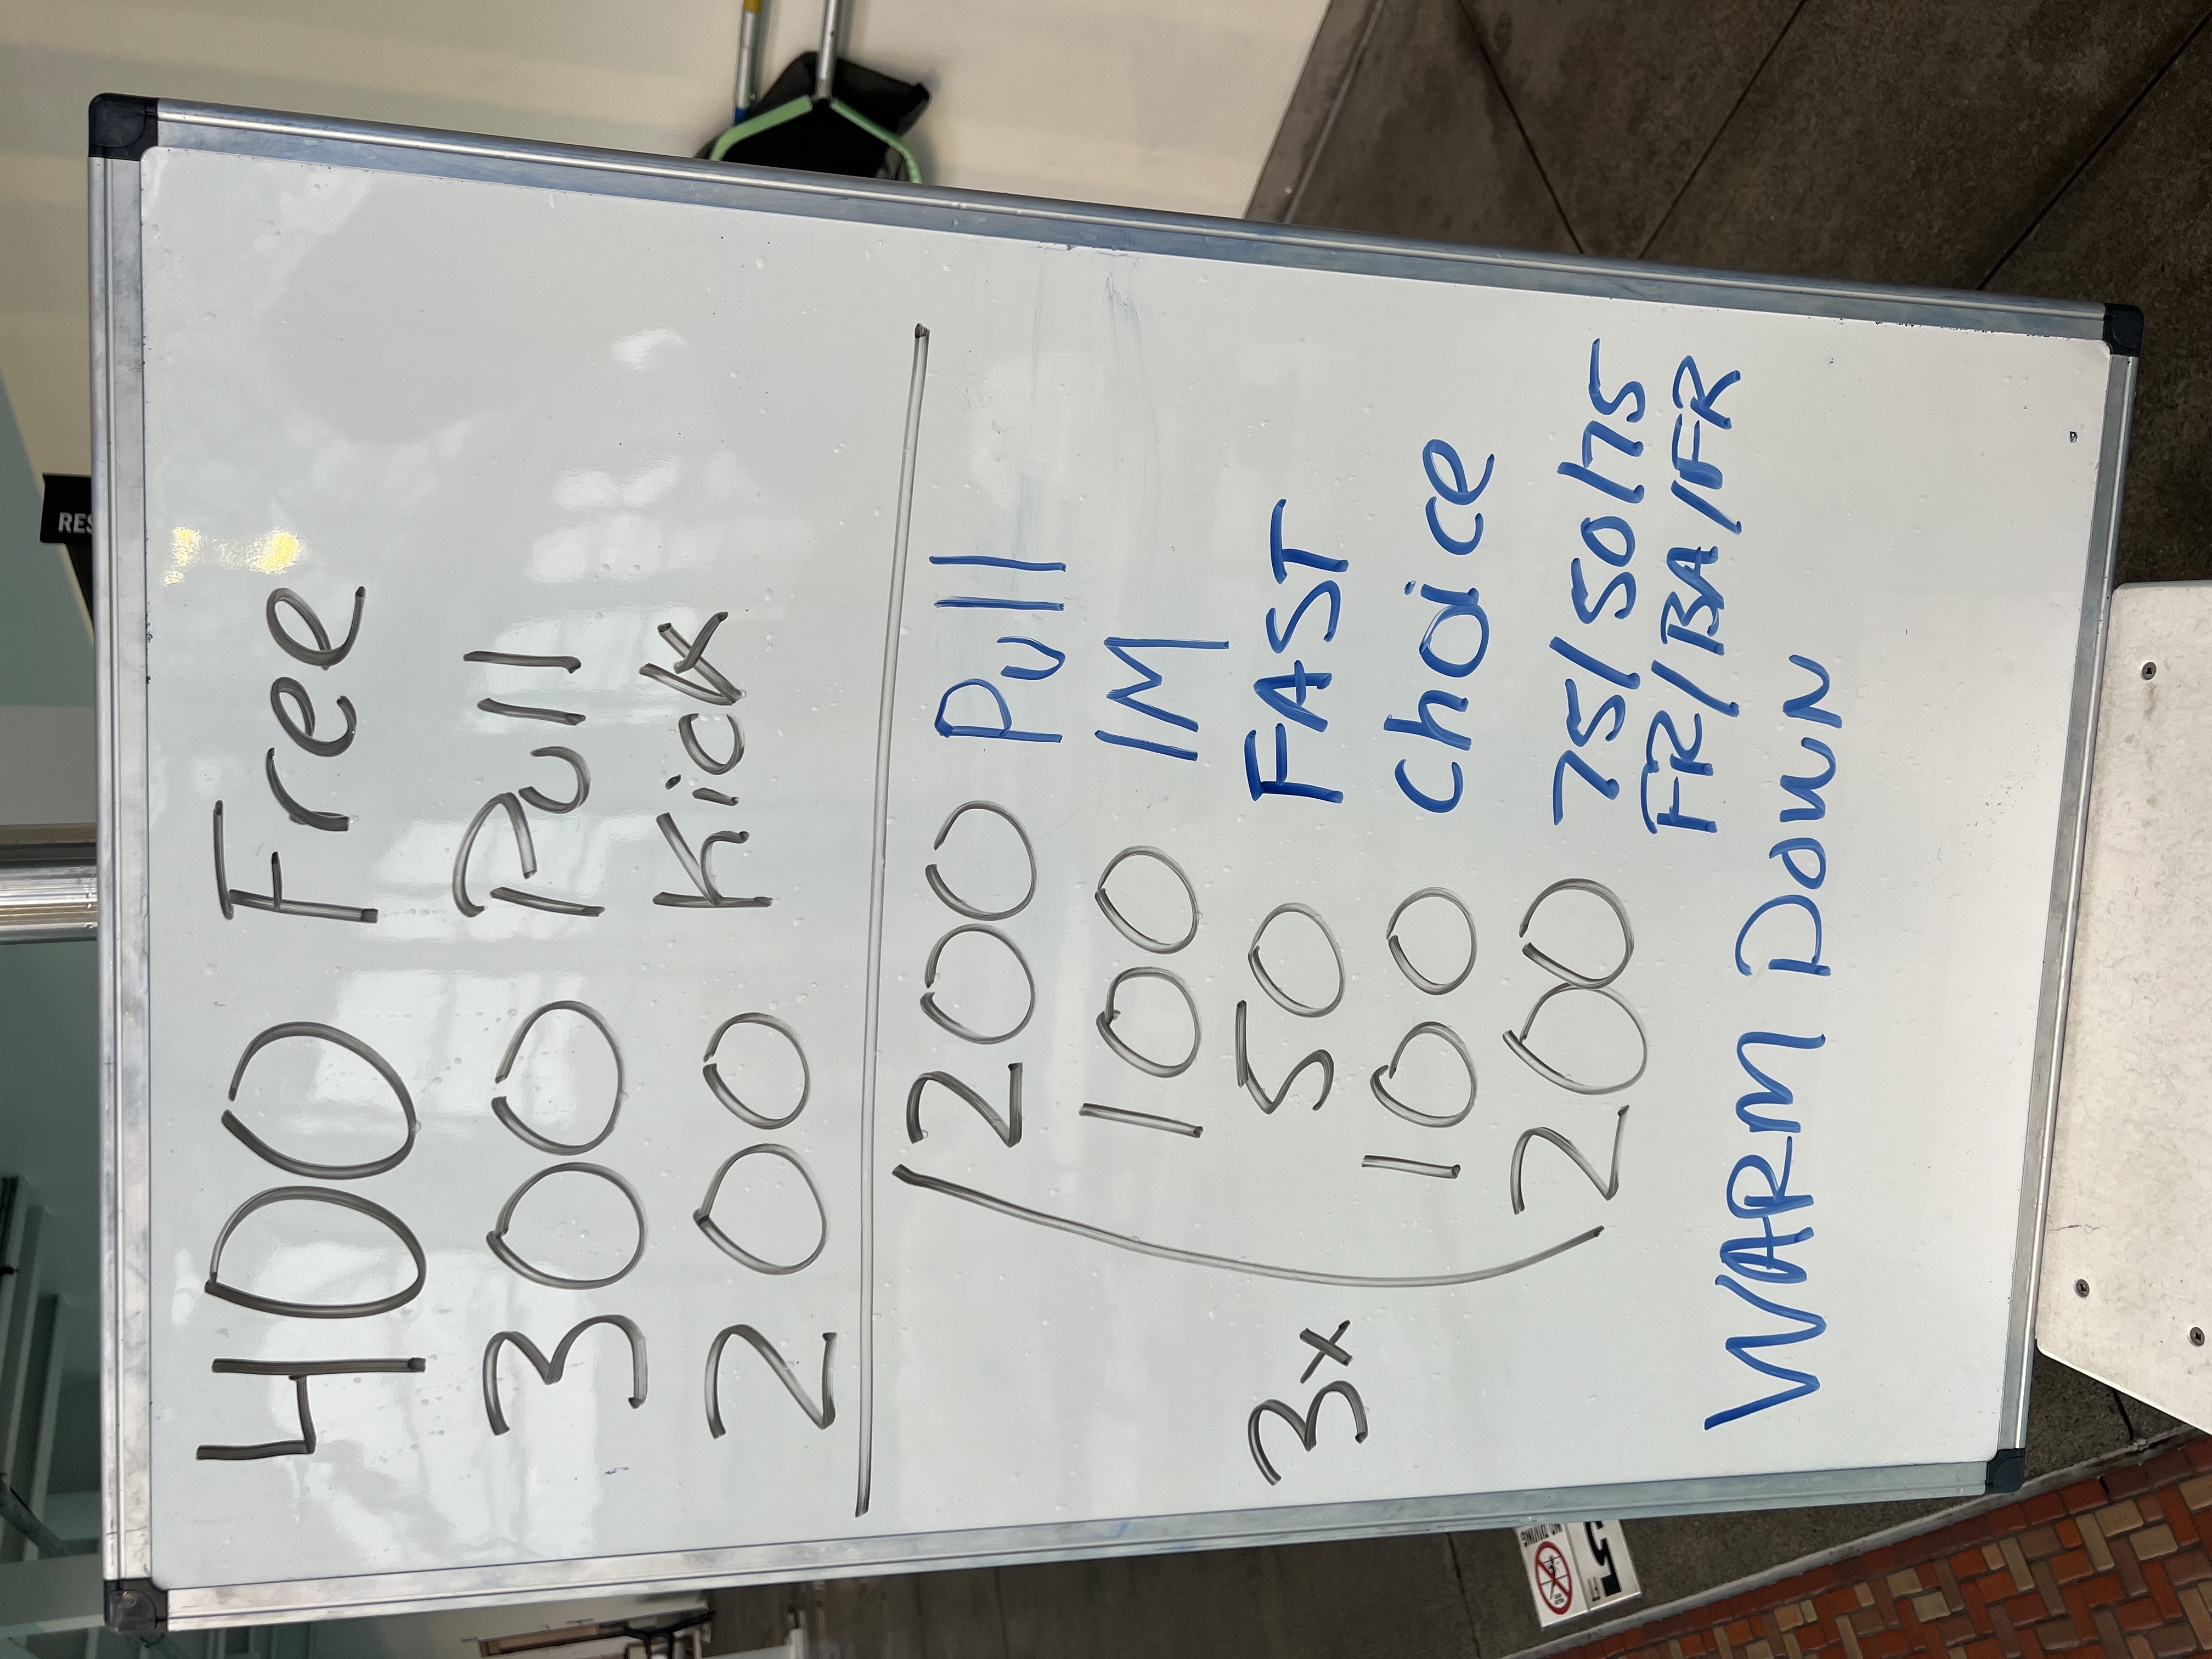 400 Free
300 Pull
200 Kick
200 Pull
100 IM
3x
50 FAST
100 choice
200 75/50/75
FR/BA/FR
WARM DOWN
RES
5 FT
NO DIVING